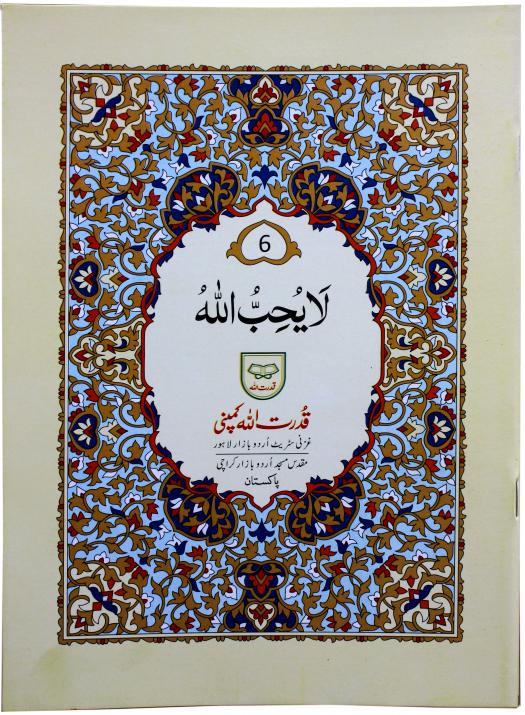 6
لَا يُحِبُّ اللهُ
قدرت اللہ
قُدرت اللہ کمپنی
غزنی سٹریٹ اُردو بازار لاہور
مقدس مسجد اُردو بازار کراچی
پاکستان